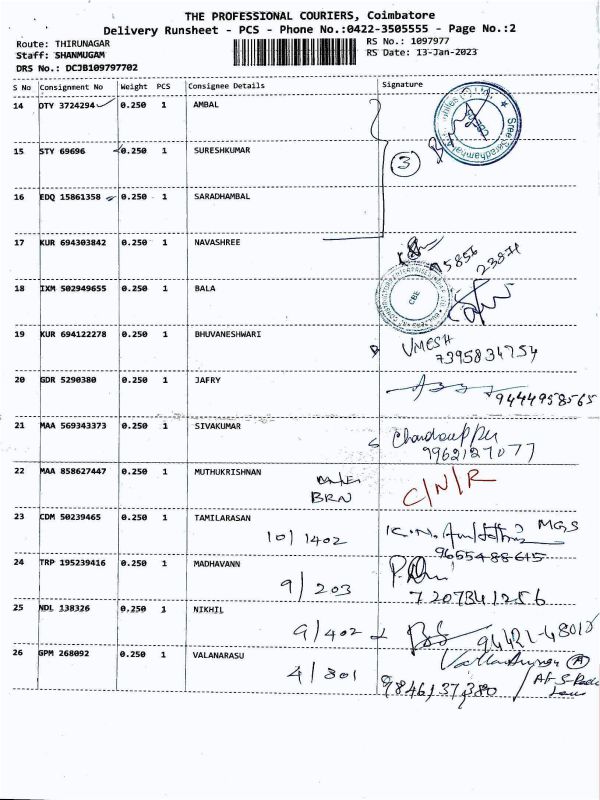 THE PROFESSIONAL COURIERS, Coimbatore
Delivery Runsheet - PCS - Phone No.:0422-3505555 - Page No.:2
Route: THIRUNAGAR RS No.: 1097977
Staff: SHANMUGAM RS Date: 13-Jan-2023
DRS No.: DCJB109797702
S No Consignment No Weight PCS Consignee Details Signature
14 DTY 3724294 0.250 1 AMBAL
15 STY 69696 0.250 1 SURESHKUMAR 3
16 EDQ 15861358 0.250 1 SARADHAMBAL
17 KUR 694303842 0.250 1 NAVASHREE
18 IXM 502949655 0.250 1 BALA CBE
19 KUR 694122278 0.250 1 BHUVANESHWARI UMESH
7395834754
20 GDR 5290380 0.250 1 JAFRY 9444958565
21 MAA 569343373 0.250 1 SIVAKUMAR
9962127077
22 MAA 858627447 0.250 1 MUTHUKRISHNAN C/N/R
BRN
23 CDM 50239465 0.250 1 TAMILARASAN 10/1402 K.N. MGS
9655488615
24 TRP 195239416 0.250 1 MADHAVANN 9/203
7207341256
25 NDL 138326 0.250 1 NIKHIL 9/402 94421-48015
26 GPM 268092 0.250 1 VALANARASU 4/801
9846137380